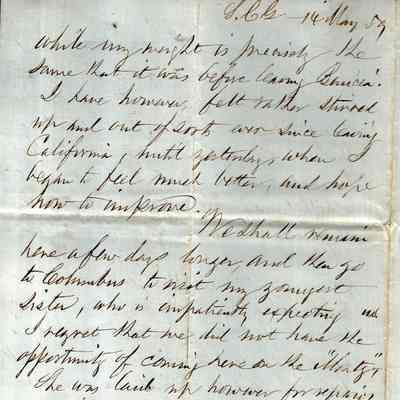 S.C.G. 14 May 59
while my weight is precisely the
same that it was before leaving Benicia.
I have however, felt rather stirred
up and out of sorts ever since leaving
California, until yesterday, when I
began to feel much better, and hope
now to improve.
We shall remain
here a few days longer, and then go
to Columbus to visit my youngest
sister, who is impatiently expecting us
I regret that we did not have the
opportunity of coming here on the "Monty"
She was laid up however for repairs